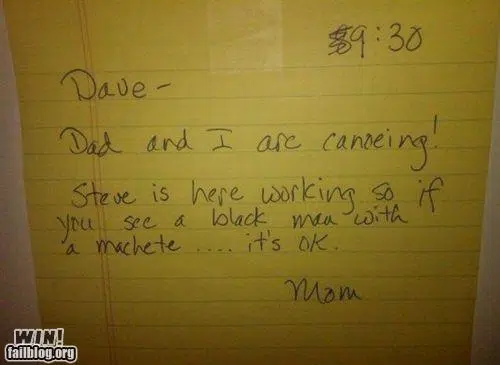 9:30
Dave-
Dad and I are canoeing!
Steve is here working so if
you see a black man with
a machete .... it's OK.
Mom
WIN!
failblog.org